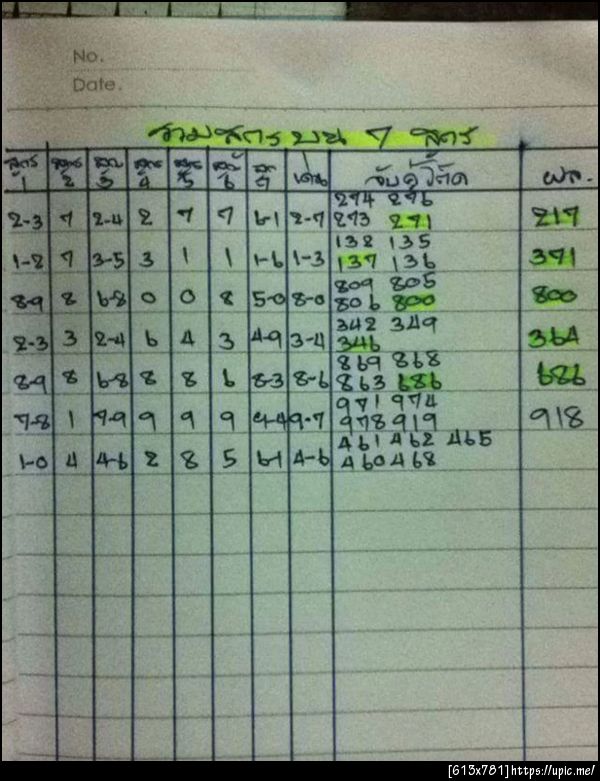 No.
Date.
รวมสูตร บน 7 สูตร
สูตร 1 สูตร 2 สูตร 3 สูตร 4 สูตร 5 สูตร 6 สูตร 7 เด่น จับคู่วิ่งโต๊ด ผล.
274 276
2-3 7 2-4 2 7 7 6-1 2-7 273 271 217
132 135
1-2 7 3-5 3 1 1 1-6 1-3 137 136 371
809 805
8-9 8 6-8 0 0 8 5-0 8-0 806 800 800
342 349
2-3 3 2-4 6 4 3 4-9 3-4 346 364
869 868
8-9 8 6-8 8 8 6 8-3 8-6 863 686 686
971 974
7-8 1 7-9 9 9 9 9-4 9-7 978 919 918
461 462 465
1-0 4 4-6 2 8 5 6-1 4-6 460 468
[613x781]https://upic.me/